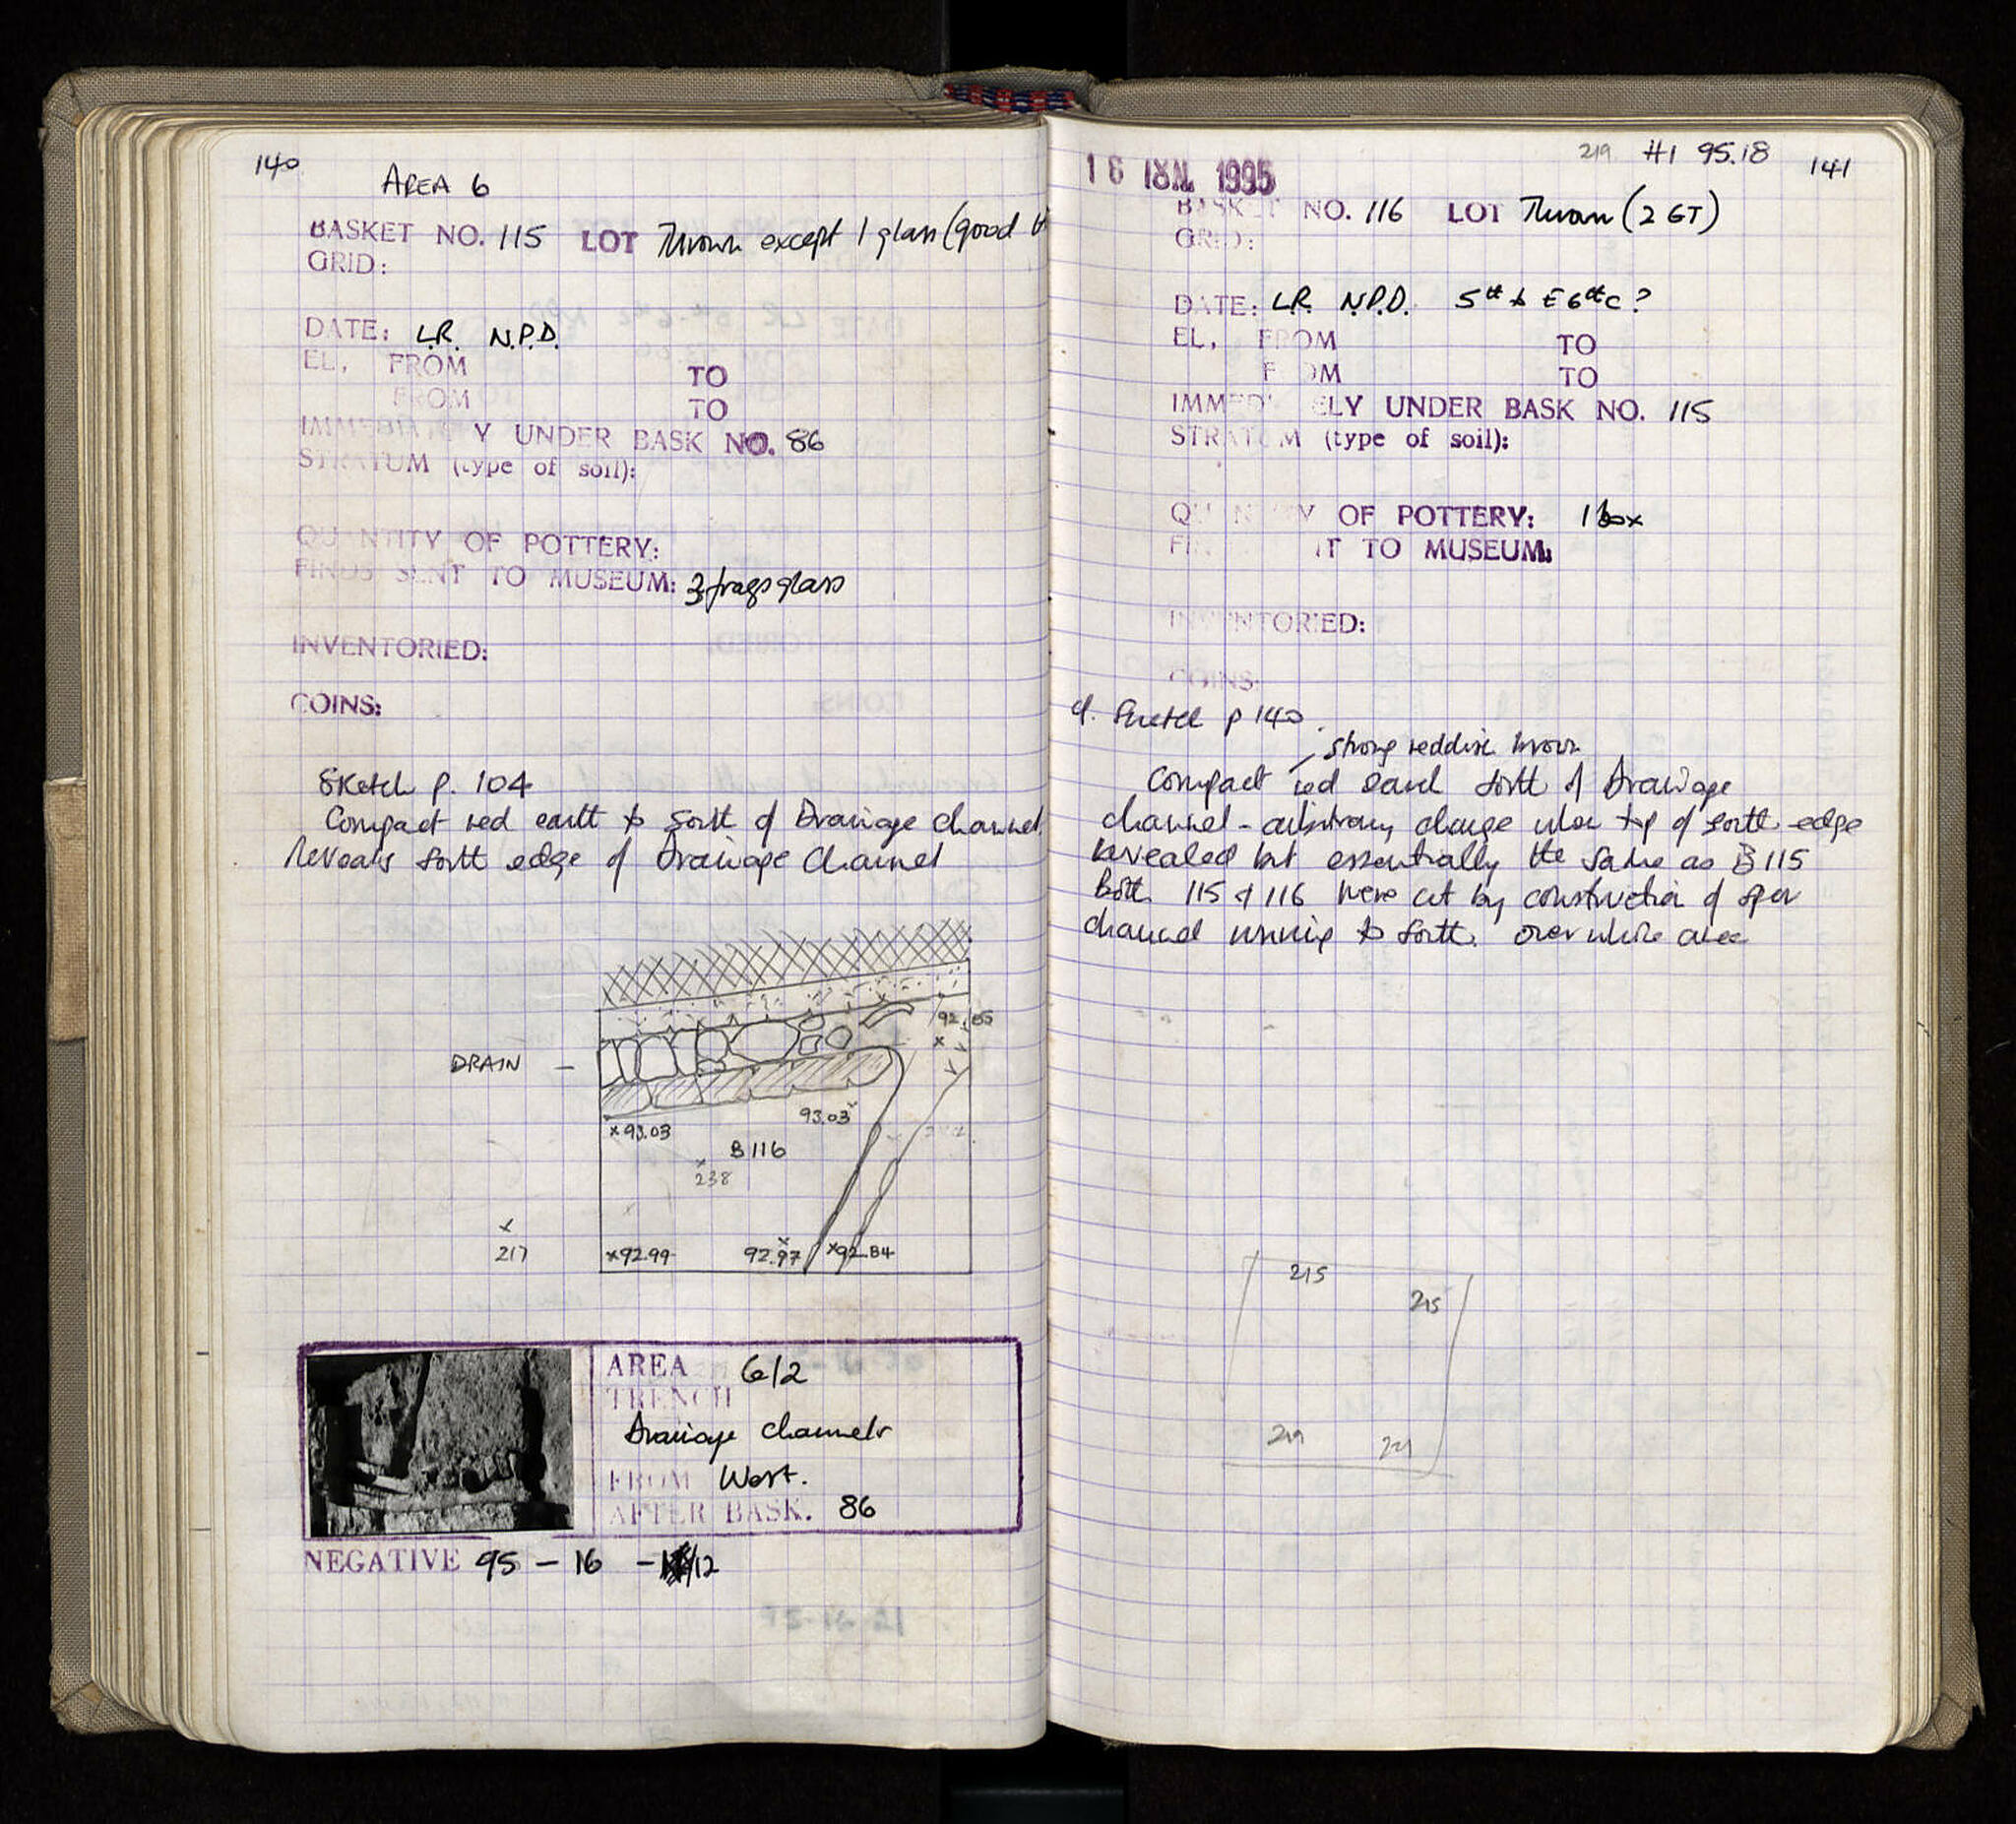 140
AREA 6
BASKET NO. 115 LOT Thrown except 1 glass (good
GRID:
DATE: L.R. N.P.D.
EL, FROM TO
FROM TO
Y UNDER BASK NO. 86
STRATUM (type of soil):
QUANTITY OF POTTERY:
FINDS SENT TO MUSEUM: 3 frags glass
INVENTORIED:
COINS:
Sketch p. 104
Compact red earth to South of Drainage Channel.
Reveals South edge of Drainage Channel
92.85
DRAIN –
93.03
x93.03
B 116
238
217
x92.99 92.97 x92.84
AREA 6/2
TRENCH
Drainage Channels
FROM West.
AFTER BASK. 86
NEGATIVE 95 – 16 – 12
219 #1 95.18 141
1995
BASKET NO. 116 LOT Thrown (2 GT)
GRID:
DATE: L.R. N.P.D. 5th to E6thC?
EL, FROM TO
FROM TO
IMMED ELY UNDER BASK NO. 115
STRATUM (type of soil):
OF POTTERY: 1 box
TO MUSEUM:
INVENTORIED:
COINS:
cf. Sketch p 140
strong reddish brown
Compact red South of Drainage
channel – arbitrary change when top of South edge
revealed but essentially the same as B 115
Both 115 & 116 were cut by construction of open
channel running to South. over whole area
215
215
219 221